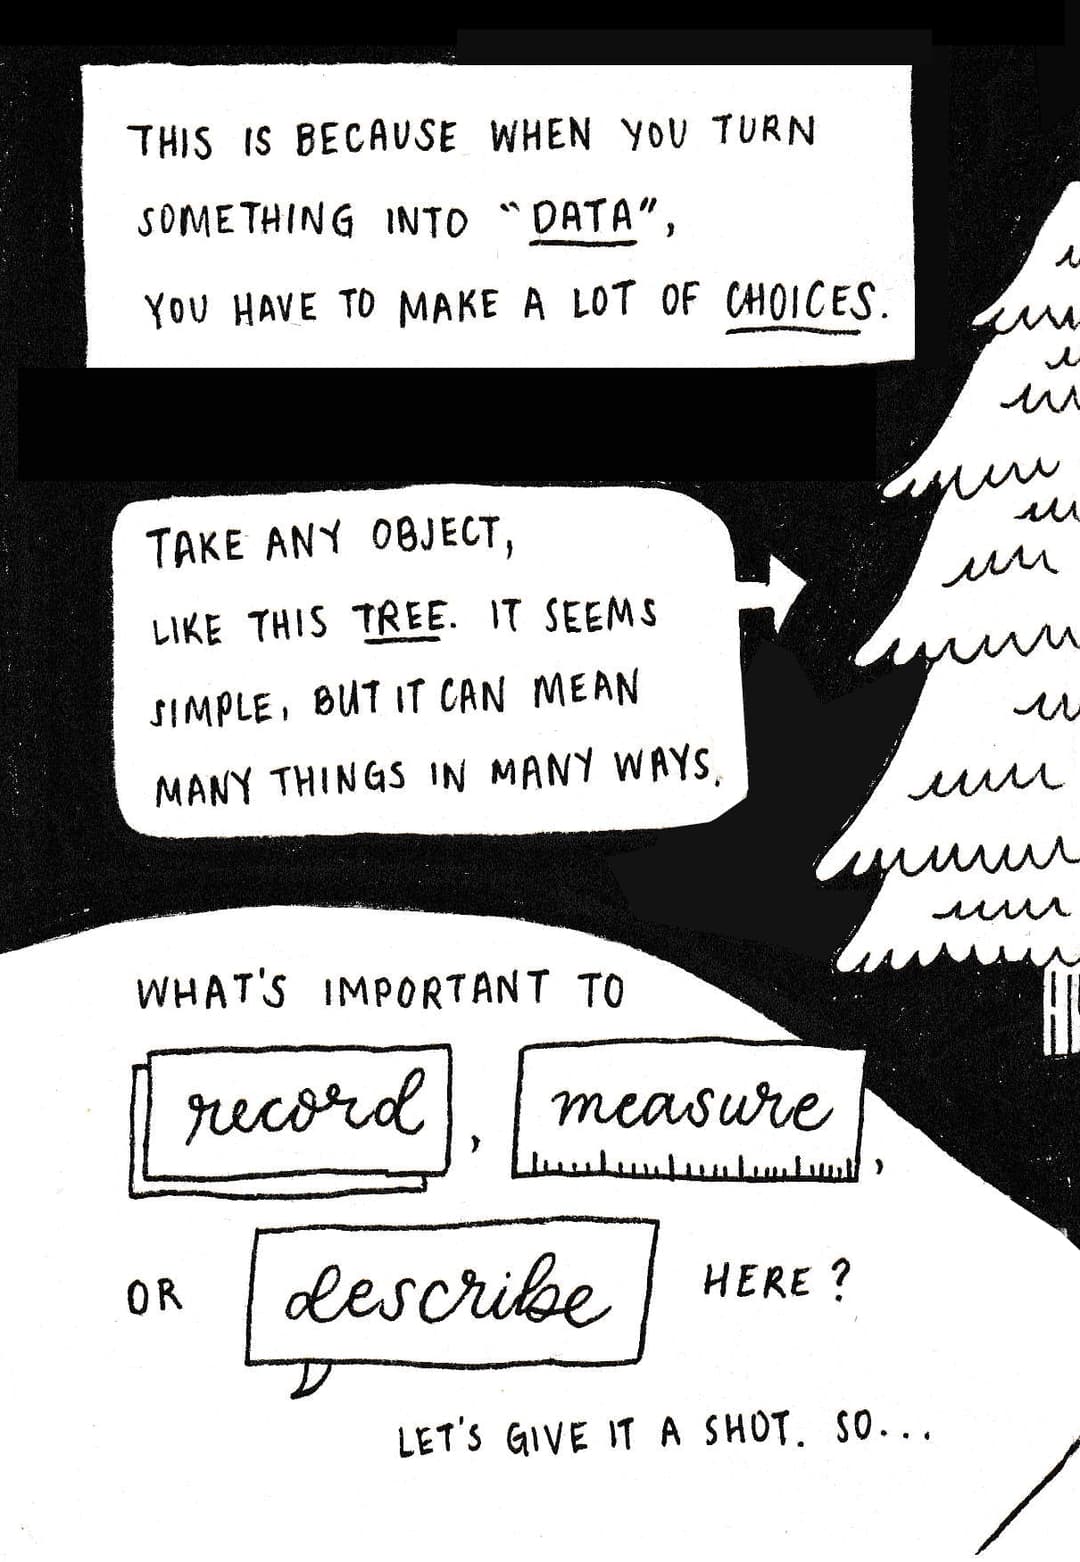 THIS IS BECAUSE WHEN YOU TURN
SOMETHING INTO "DATA",
YOU HAVE TO MAKE A LOT OF CHOICES.
TAKE ANY OBJECT,
LIKE THIS TREE. IT SEEMS
SIMPLE, BUT IT CAN MEAN
MANY THINGS IN MANY WAYS.
WHAT'S IMPORTANT TO
record, measure,
OR describe HERE?
LET'S GIVE IT A SHOT. SO...